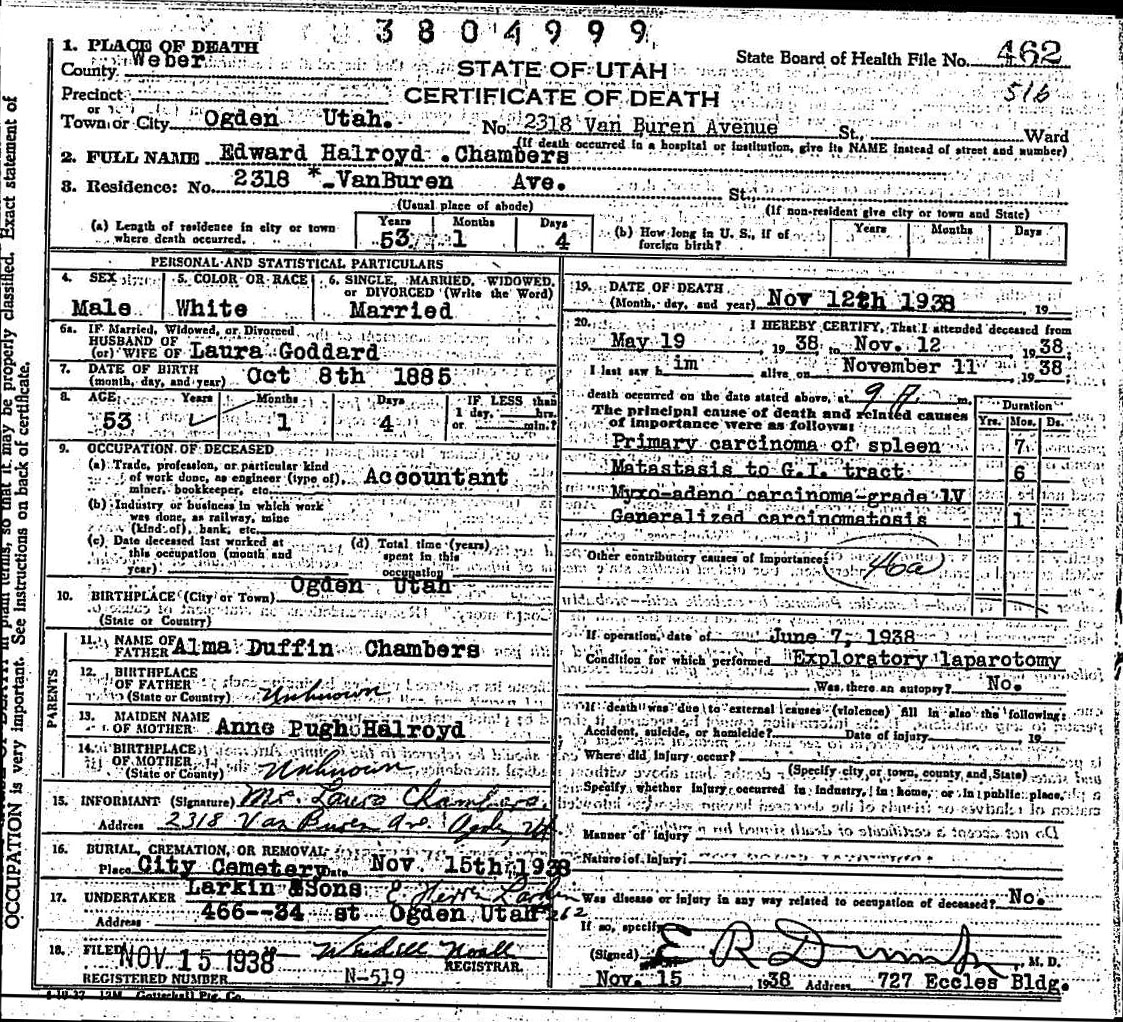 3804999
1. PLACE OF DEATH
County Weber
STATE OF UTAH
State Board of Health File No. 462
516
Precinct
CERTIFICATE OF DEATH
or
Town or City Ogden Utah. No. 2318 Van Buren Avenue St., Ward
(If death occurred in a hospital or institution, give its NAME instead of street and number)
2. FULL NAME Edward Halroyd .Chambers
3. Residence: No. 2318 *-VanBuren Ave. St.,
(Usual place of abode) (If non-resident give city or town and State)
(a) Length of residence in city or town where death occurred. Years 53 Months 1 Days 4
(b) How long in U. S., if of foreign birth? Years Months Days
PERSONAL AND STATISTICAL PARTICULARS
4. SEX Male
5. COLOR OR RACE White
6. SINGLE, MARRIED, WIDOWED, or DIVORCED (Write the Word) Married
6a. IF Married, Widowed, or Divorced
HUSBAND OF
(or) WIFE OF Laura Goddard
7. DATE OF BIRTH
(month, day, and year) Oct 8th 1885
8. AGE Years 53 Months 1 Days 4 IF LESS than 1 day, hrs. or min.?
9. OCCUPATION OF DECEASED
(a) Trade, profession, or particular kind of work done, as engineer (type of), miner, bookkeeper, etc. Accountant
(b) Industry or business in which work was done, as railway, mine (kind of), bank, etc.
(c) Date deceased last worked at this occupation (month and year)
(d) Total time (years) spent in this occupation
10. BIRTHPLACE (City or Town) Ogden Utah
(State or Country)
PARENTS
11. NAME OF FATHER Alma Duffin Chambers
12. BIRTHPLACE OF FATHER
(State or Country) Unknown
13. MAIDEN NAME OF MOTHER Anne Pugh Halroyd
14. BIRTHPLACE OF MOTHER
(State or County) Unknown
15. INFORMANT (Signature) Mrs. Laura Chambers.
Address 2318 Van Buren Ave. Ogden Ut
16. BURIAL, CREMATION, OR REMOVAL
Place City Cemetery Date Nov. 15th 1938
17. UNDERTAKER Larkin & Sons
Address 466--34 st Ogden Utah 262
18. FILED NOV 15 1938 Wendell Noall
REGISTRAR.
REGISTERED NUMBER N-519
19. DATE OF DEATH
(Month, day, and year) Nov 12th 1938 19
20. I HEREBY CERTIFY, That I attended deceased from
May 19 1938, to Nov. 12 1938;
I last saw him alive on November 11 1938
death occurred on the date stated above, at 9 m.
The principal cause of death and related causes of importance were as follows: Duration Yrs. Mos. Ds.
Primary carcinoma of spleen 7
Matastasis to G.I. tract 6
Myxo-adeno carcinoma-grade 1V
Generalized carcinomatosis 1
Other contributory causes of importance: 46a
If operation, date of June 7, 1938
Condition for which performed Exploratory laparotomy
Was there an autopsy? No.
If death was due to external causes (violence) fill in also the following:
Accident, suicide, or homicide? Date of injury 19
Where did injury occur?
(Specify city or town, county and State)
Specify whether injury occurred in industry, in home, or in public place,
Manner of injury
Nature of injury
Was disease or injury in any way related to occupation of deceased? No.
If so, specify
(Signed) E R Dumke, M. D.
Nov. 15 1938 Address 727 Eccles Bldg.
Exact statement of
in plain terms, so that it may be properly classified.
OCCUPATION is very important. See instructions on back of certificate.